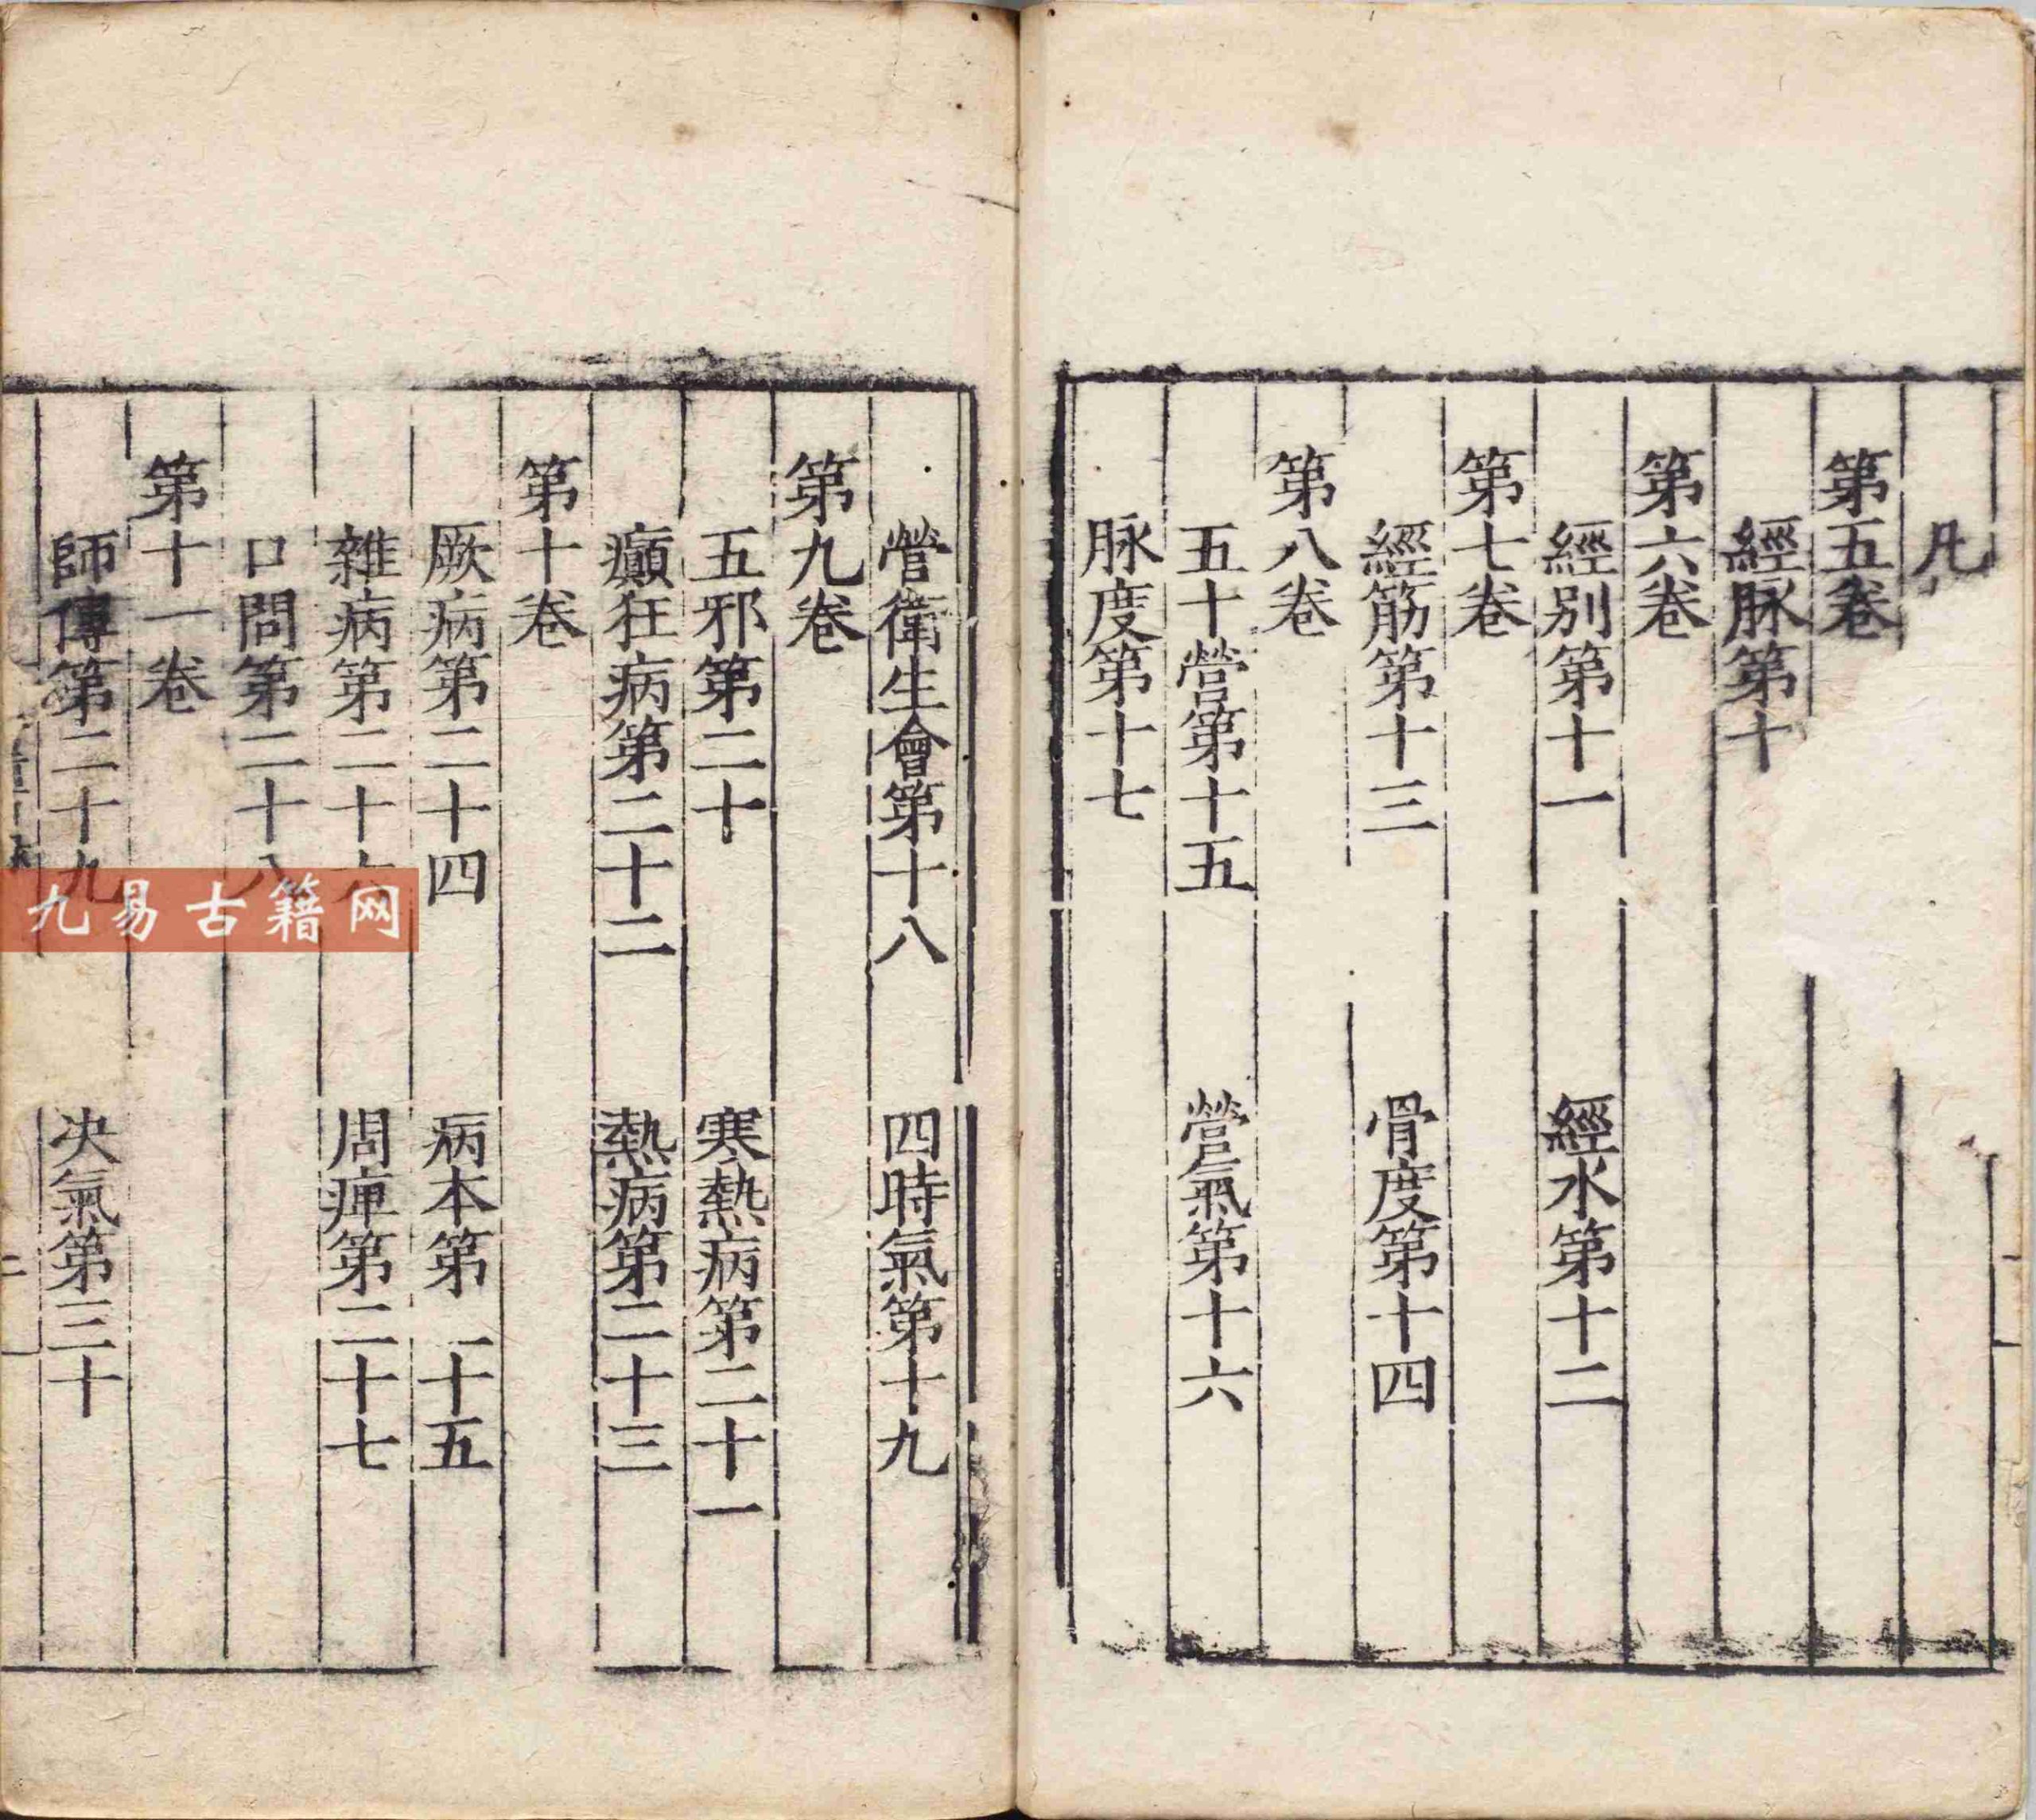 第五卷
經脉第十
第六卷
經別第十一 經水第十二
第七卷
經筋第十三 骨度第十四
第八卷
五十營第十五 營氣第十六
脉度第十七
營衛生會第十八 四時氣第十九
第九卷
五邪第二十 寒熱病第二十一
癲狂病第二十二 熱病第二十三
第十卷
厥病第二十四 病本第二十五
雜病第二十六 周痺第二十七
口問第二十八
第十一卷
師傳第二十九 决氣第三十
二
九易古籍网